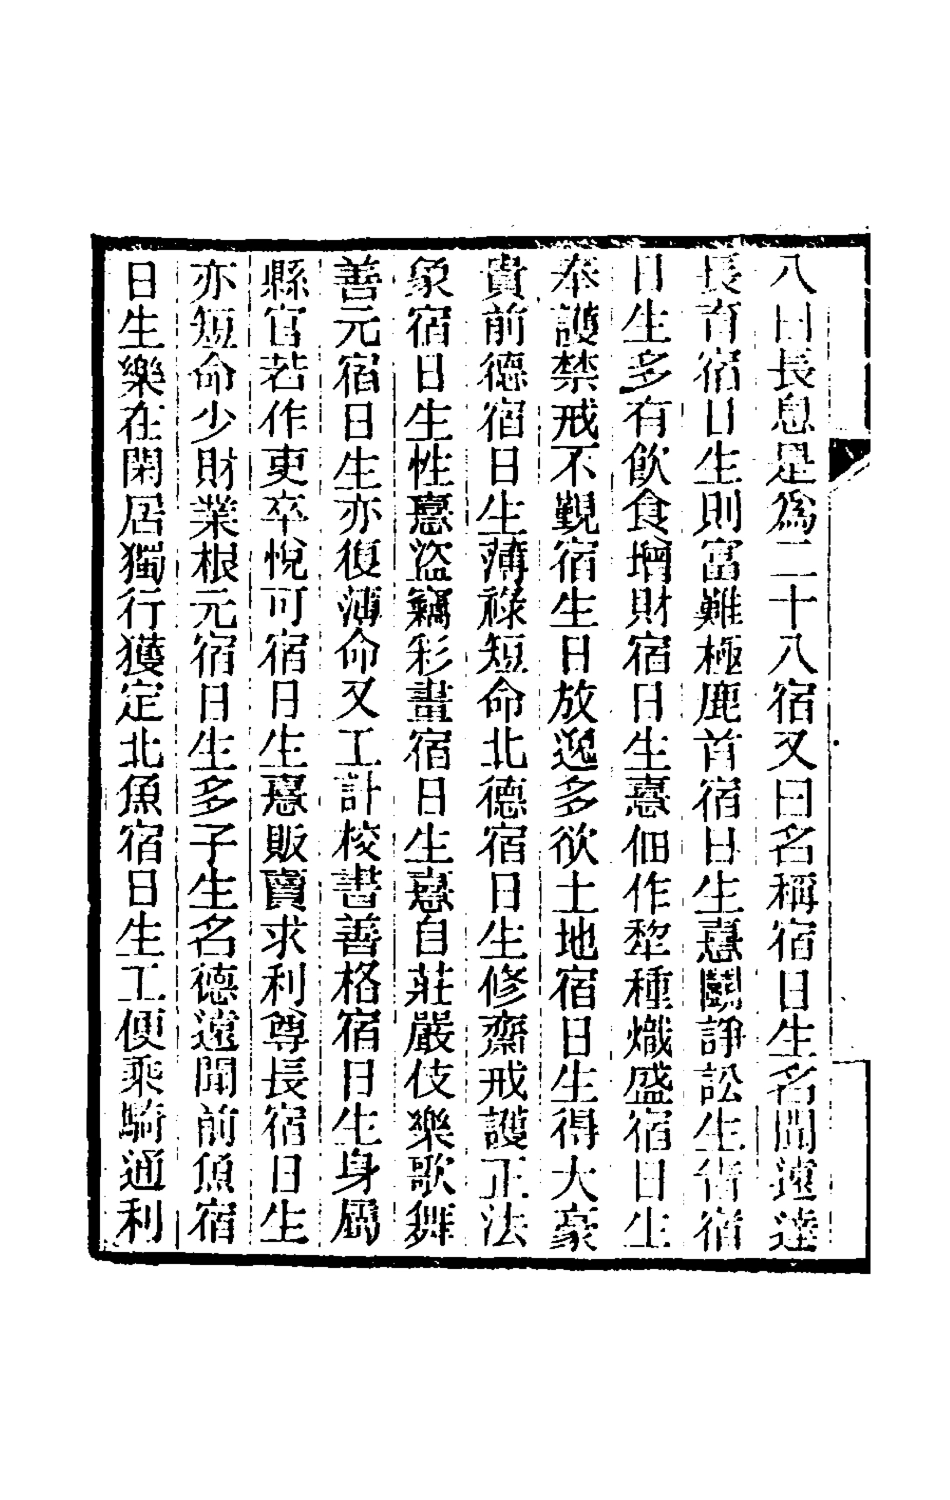 八曰長息是爲二十八宿又曰名稱宿日生名聞遠達
長育宿日生則富難極鹿首宿日生憙鬭諍訟生眚宿
日生多有飲食增財宿日生憙佃作犂種熾盛宿日生
奉護禁戒不覲宿生日放逸多欲土地宿日生得大豪
貴前德宿日生薄祿短命北德宿日生修齋戒護正法
象宿日生性憙盜竊彩畫宿日生憙自莊嚴伎樂歌舞
善元宿日生亦復薄命又工計校書善格宿日生身屬
縣官若作吏卒悅可宿日生憙販賣求利尊長宿日生
亦短命少財業根元宿日生多子生名德遠聞前魚宿
日生樂在閑居獨行獲定北魚宿日生工便乘騎通利